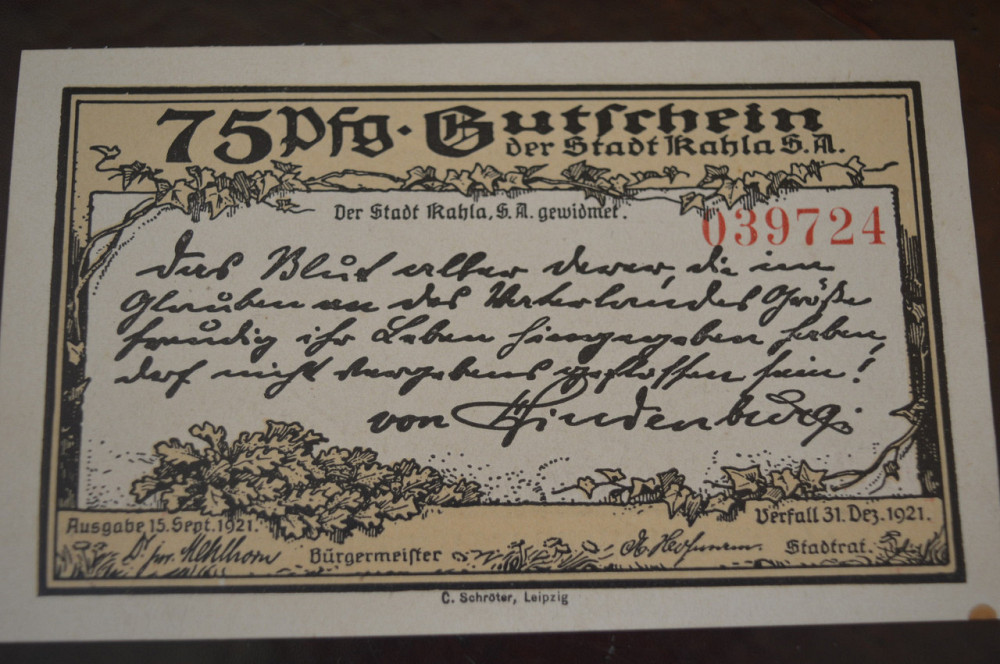 75 Pfg. Gutschein
der Stadt Kahla S. A.
Der Stadt Kahla, S. A. gewidmet.
039724
Das Blut aller derer, die im
Glauben an des Vaterlandes Größe
freudig ihr Leben hingegeben haben,
darf nicht vergebens geflossen sein!
von Hindenburg.
Ausgabe 15. Sept. 1921.
Verfall 31. Dez. 1921.
Dr. jur. Mehlhorn Bürgermeister
Stadtrat.
C. Schröter, Leipzig